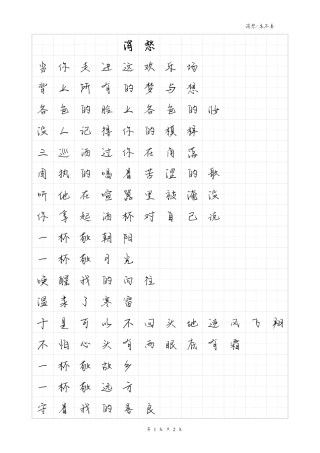 消愁-毛不易
消愁
当你走进这欢乐场
背上所有的梦与想
各色的脸上各色的妆
没人记得你的模样
三巡酒过你在角落
固执的唱着苦涩的歌
听他在喧嚣里被淹没
你拿起酒杯对自己说
一杯敬朝阳
一杯敬月光
唤醒我的向往
温柔了寒窗
于是可以不回头地逆风飞翔
不怕心头有雨眼底有霜
一杯敬故乡
一杯敬远方
守着我的善良
第 1 页 共 2 页